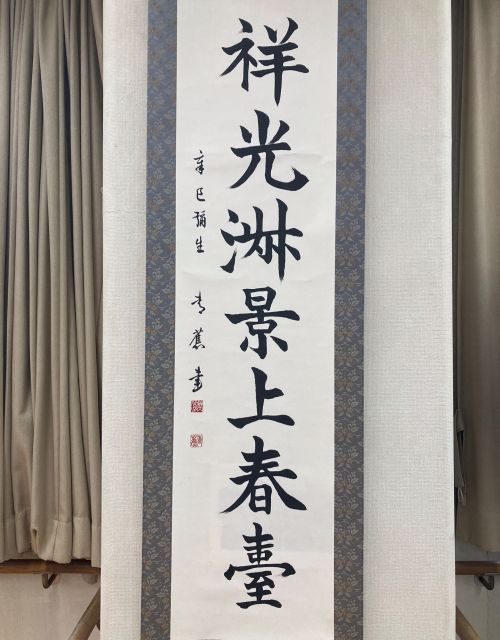 祥光淑景上春臺
辛巳彌生 蕉書